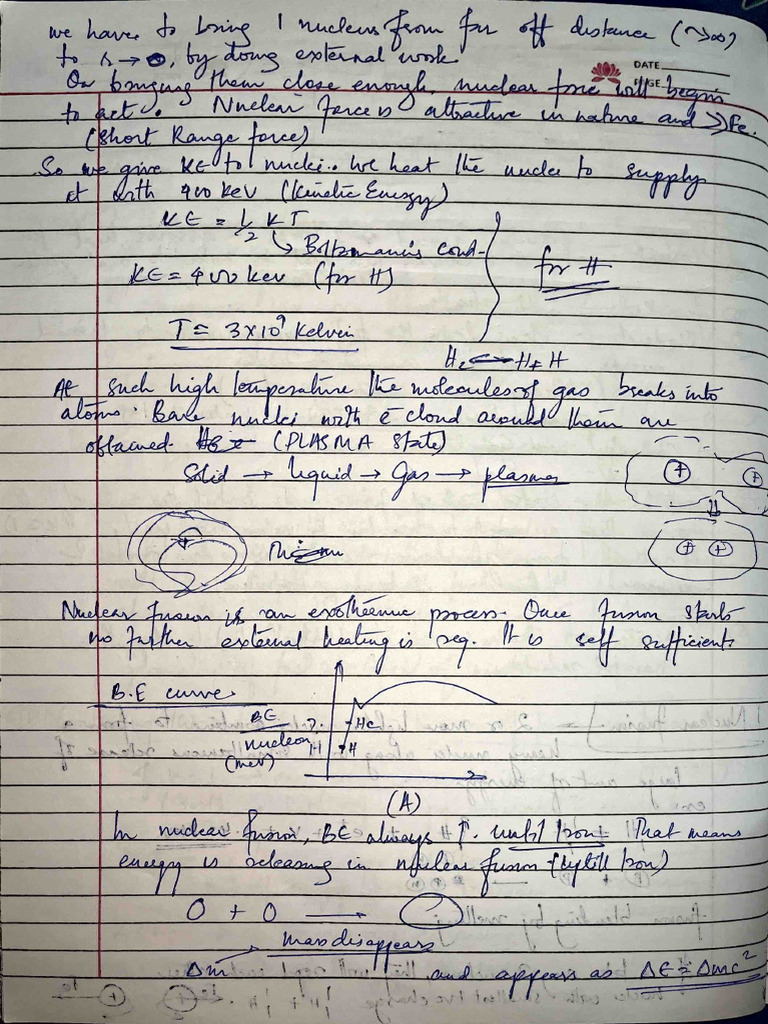 we have to bring 1 nucleus from far off distance (~∞)
to r → 0, by doing external work
DATE
PAGE
On bringing them close enough, nuclear force will begin
to act. Nuclear force is attractive in nature and >> Fe.
(Short Range force)
So we give KE to nuclei. We heat the nuclei to supply
it with 400 keV (Kinetic Energy)
KE = 1/2 KT
↳ Boltzmann's const
KE = 400 kev (for H)
for H
T = 3x10⁹ Kelvin
H₂ H + H
At such high temperature the molecules of gas breaks into
atoms. Bare nuclei with e⁻ cloud around them are
obtained. (PLASMA State)
Solid → liquid → Gas → plasma
+ +
+ +
Nuclear fusion is an exothermic process. Once fusion starts
no further external heating is req. It is self sufficient
B.E curve
BE
nucleon
(MeV)
He
H H
(A)
In nuclear fusion, BE always ↑. until Iron. That means
energy is releasing in nuclear fusion (uptill Iron)
O + O →
mass disappears
Δm and appears as ΔE = Δmc²